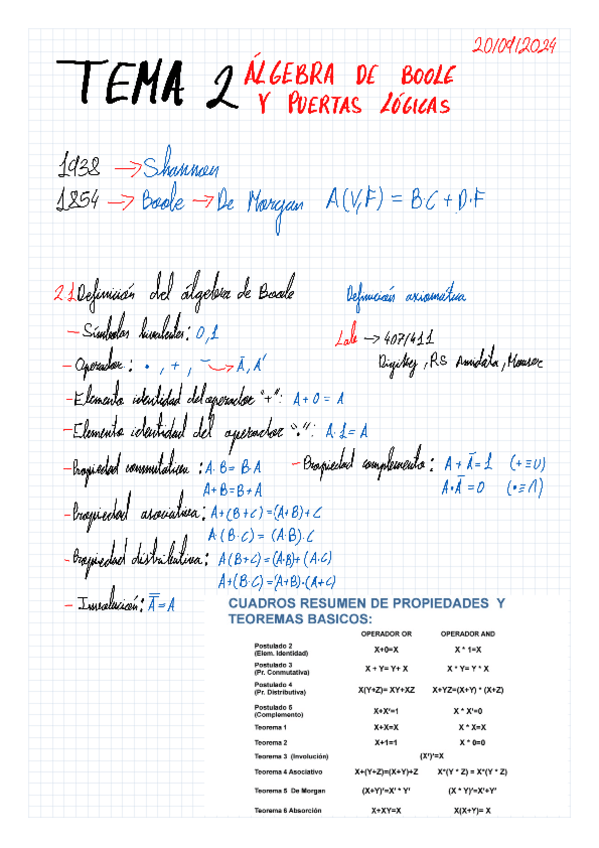 20/09/2024
TEMA 2 ÁLGEBRA DE BOOLE
Y PUERTAS LÓGICAS
1938 → Shannon
1854 → Boole → De Morgan A(V,F) = B·C + D·F
2.1 Definición del álgebra de Boole
Definición axiomática
- Símbolos bivalentes: 0,1
Lab → 407/411
Digikey, RS Amidata, Mouser
- Operador: ·, +, ¯ → Ā, A'
- Elemento identidad del operador "+": A+0 = A
- Elemento identidad del operador "·": A·1 = A
- Propiedad conmutativa: A·B = B·A
A+B = B+A
- Propiedad complemento: A + Ā = 1 (+ ≡ U)
A·Ā = 0 (· ≡ ∩)
- Propiedad asociativa: A+(B+C) = (A+B)+C
A·(B·C) = (A·B)·C
- Propiedad distributiva: A(B+C) = (A·B)+(A·C)
A+(B·C) = (A+B)·(A+C)
- Involución: A̿ = A
CUADROS RESUMEN DE PROPIEDADES Y
TEOREMAS BASICOS:
OPERADOR OR OPERADOR AND
Postulado 2
(Elem. Identidad) X+0=X X * 1=X
Postulado 3
(Pr. Conmutativa) X + Y= Y+ X X * Y= Y * X
Postulado 4
(Pr. Distributiva) X(Y+Z)= XY+XZ X+YZ=(X+Y) * (X+Z)
Postulado 5
(Complemento) X+X'=1 X * X'=0
Teorema 1 X+X=X X * X=X
Teorema 2 X+1=1 X * 0=0
Teorema 3 (Involución) (X')'=X
Teorema 4 Asociativo X+(Y+Z)=(X+Y)+Z X*(Y * Z) = X*(Y * Z)
Teorema 5 De Morgan (X+Y)'=X' * Y' (X * Y)'=X'+Y'
Teorema 6 Absorción X+XY=X X(X+Y)= X